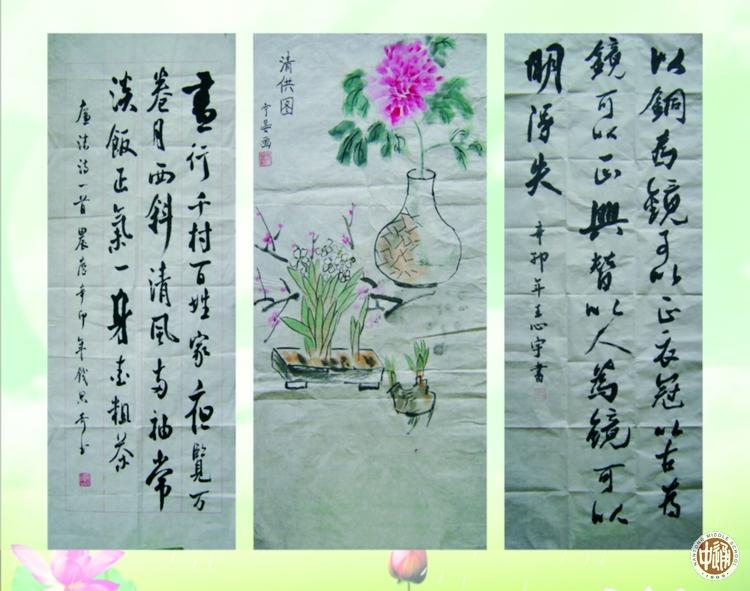 晝行千村百姓家夜覽万
卷月西斜清风两袖常
淡飯正氣一身粗茶
廉洁詩一首 辛卯年
清供图
画
以銅為鏡可以正衣冠以古為
鏡可以正興替以人為鏡可以
明得失
辛卯年王心宇書
NANTONG MIDDLE SCHOOL